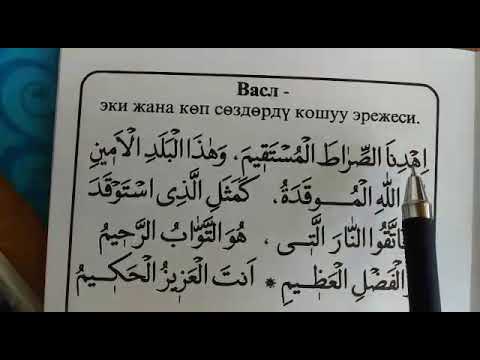 Васл -
эки жана көп сөздөрдү кошуу эрежеси.
اِهْدِنَا الصِّرَاطَ الْمُسْتَقٖيمَ، وَهٰذَا الْبَلَدِ الْاَمٖينِ
اللّٰهِ الْمُوقَدَةُ، كَمَثَلِ الَّذِى اسْتَوْقَدَ
فَاتَّقُوا النَّارَ الَّتٖى، هُوَ التَّوَّابُ الرَّحٖيمُ
الْفَضْلِ الْعَظٖيمِ * اَنتَ الْعَزٖيزُ الْحَكٖيمُ